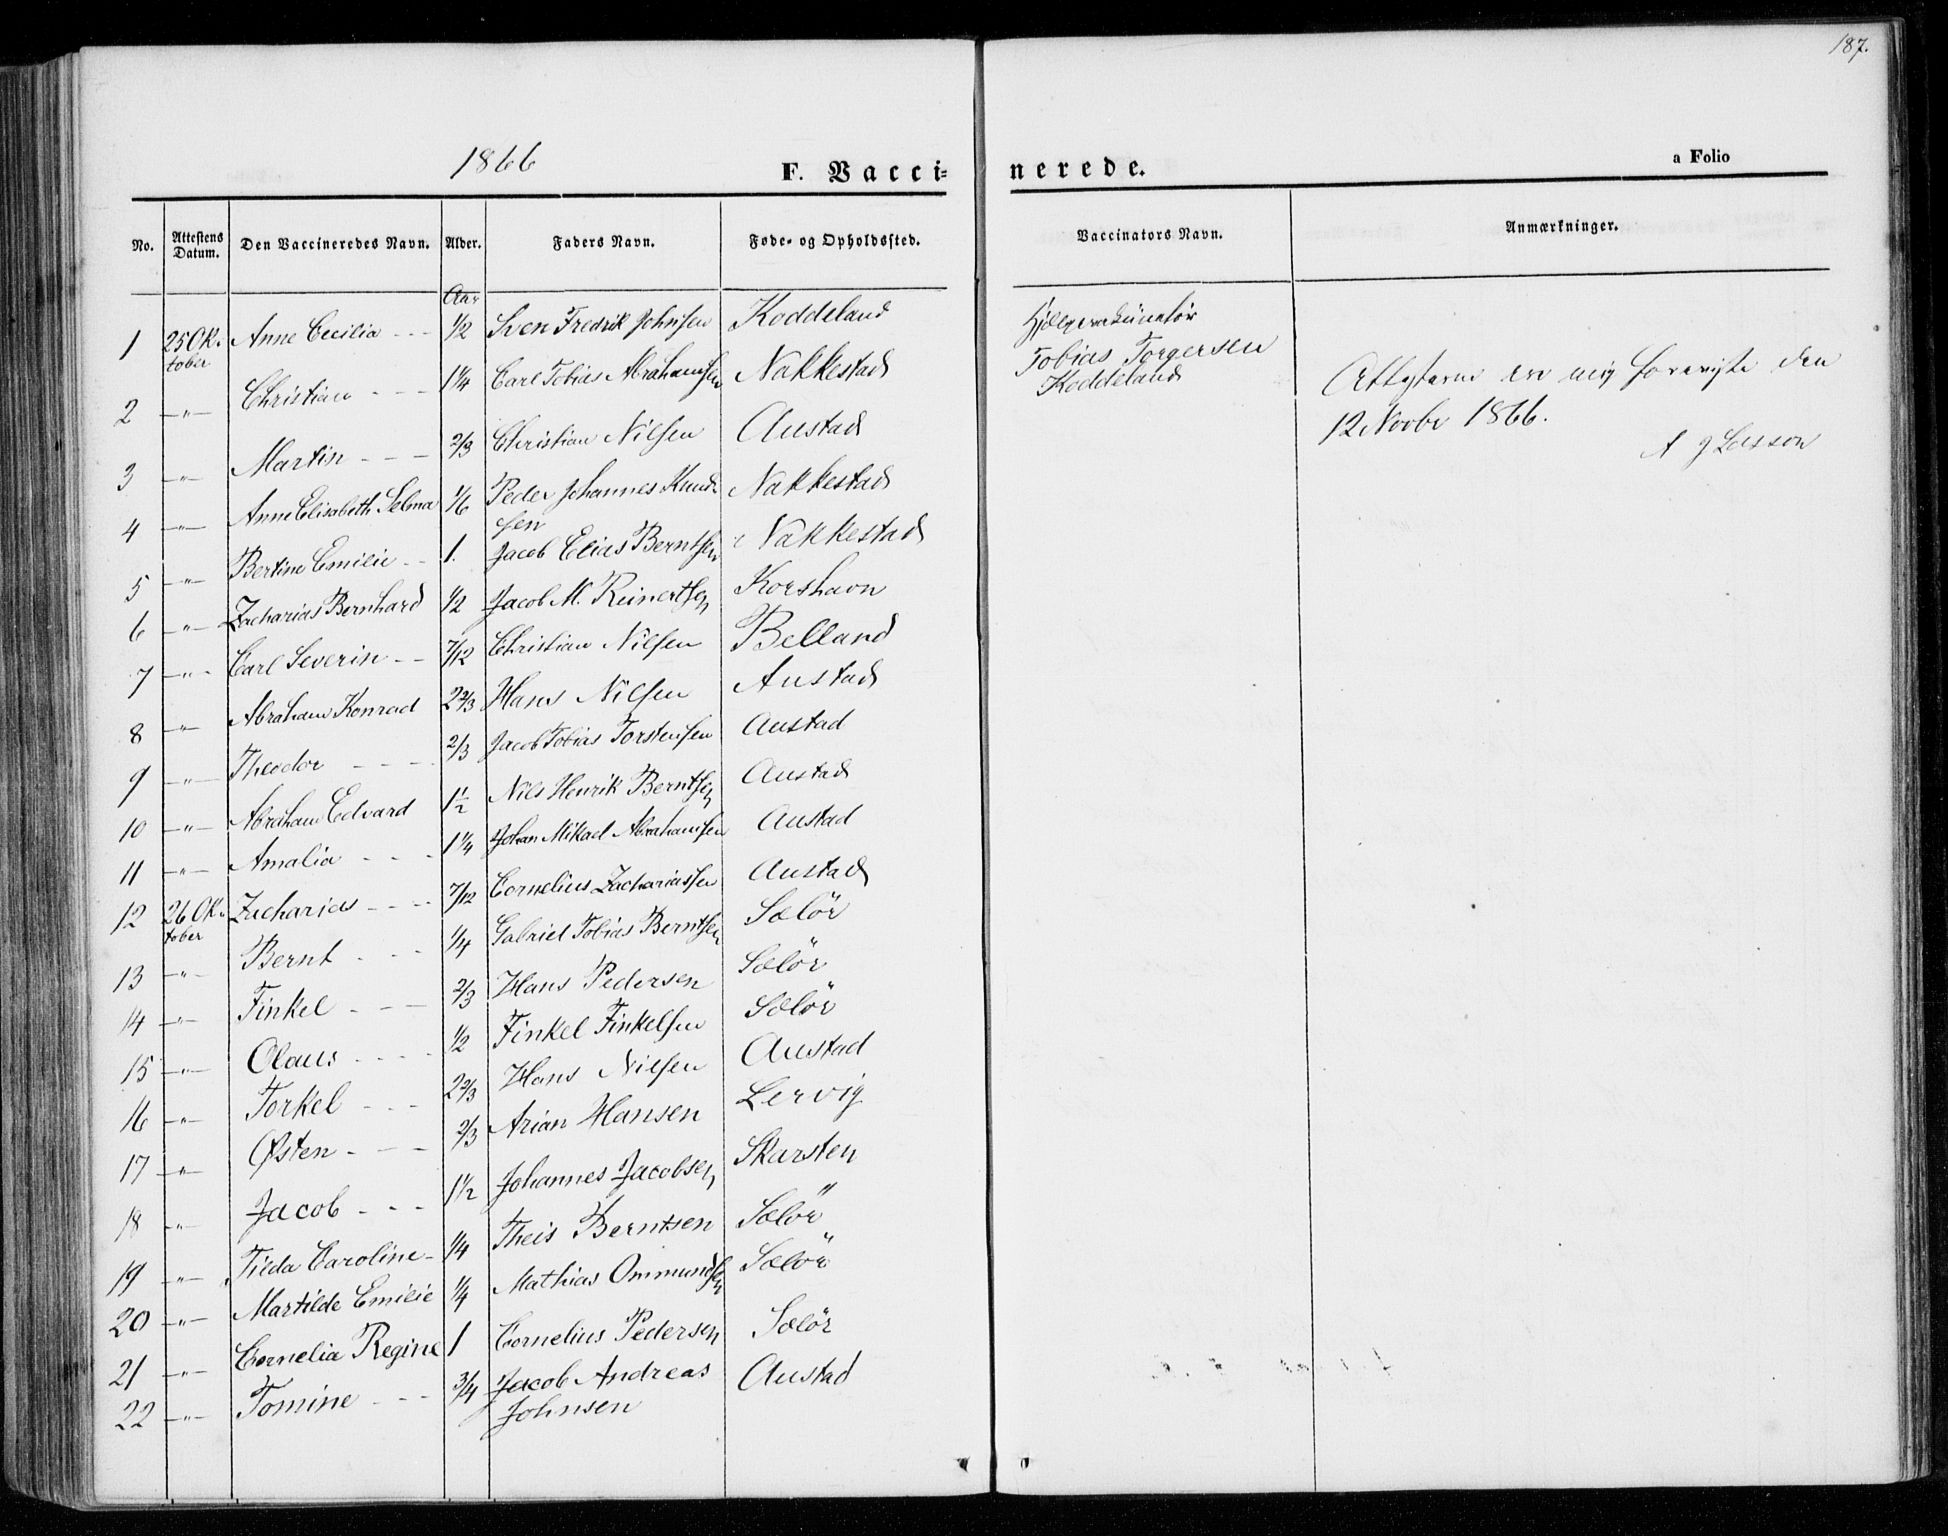 187.
1866
F. Vacci-nerede.
a Folio
No. Attestens Datum. Den Vaccineredes Navn. Alder. Faders Navn. Føde- og Opholdssted. Vaccinators Navn. Anmærkninger.
Aar
1 25 Ok-tober Anne Cecilia - - - 1/2 Sven Fredrik Johnsen Koddeland
2 -"- Christian - - - 1 1/4 Carl Tobias Abrahamsen Nakkestad
3 -"- Martin - - - 2/3 Christian Nilsen Austad
4 -"- Anne Elisabeth Selma 1/6 Peder Johannes Knud-sen Nakkestad
5 -"- Bertine Emilie - - 1. Jacob Elias Berntsen Nakkestad
6 -"- Zacharias Bernhard 1/2 Jacob M. Reinertsen Korshavn
7 -"- Carl Severin - - 7/12 Christian Nilsen Belland
8 -"- Abraham Konrad 2 2/3 Hans Nilsen Austad
9 -"- Theodor - - - - 2/3 Jacob Tobias Torstensen Austad
10 -"- Abraham Edvard 1 1/2 Nils Henrik Berntsen Austad
11 -"- Amalia - - - - 1 1/4 Johan Mikael Abrahamsen Austad
12 26 Ok-tober Zacharias - - - - 7/12 Cornelius Zachariassen Austad
13 -"- Bernt - - - 1/4 Gabriel Tobias Berntsen Sælör
14 -"- Finkel - - - 2/3 Hans Pedersen Sælör
15 -"- Olaus - - - - 1/2 Finkel Finkelsen Sælör
16 -"- Torkel - - - 2 2/3 Hans Nilsen Austad
17 -"- Østen - - - - 2/3 Arian Hansen Lervig
18 -"- Jacob - - - 1 1/2 Johannes Jacobsen Skarsten
19 -"- Tilda Caroline - 1/4 Theis Berntsen Sælör
20 -"- Martilde Emilie 1/4 Mathias Ommundsen Sælör
21 -"- Cornelia Regine 1 Cornelius Pedersen Sælör
22 -"- Tomine - - - 3/4 Jacob Andreas Johnsen Austad
Hjælpevakcinatör
Tobias Torgersen
Koddeland
Attesterne ere mig foreviste den
12 Novbr 1866.